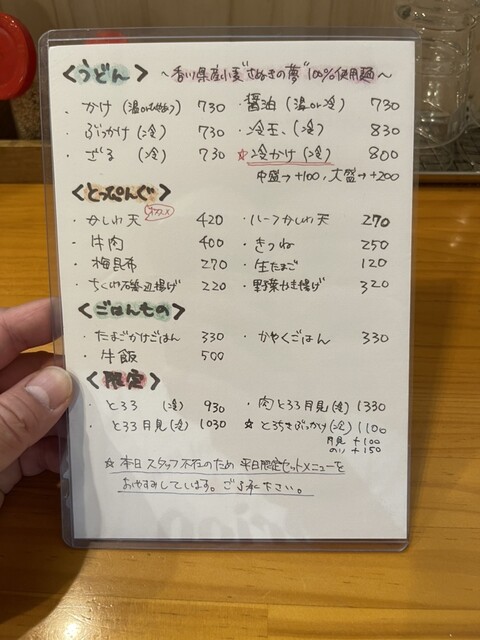 <うどん> 〜香川県産小麦"さぬきの夢"100%使用麺〜
・かけ (温or冷) 730 ・醤油 (温or冷) 730
・ぶっかけ (冷) 730 ・冷玉 (冷) 830
・ざる (冷) 730 ☆冷かけ (冷) 800
中盛→+100, 大盛→+200
<とっぴんぐ>
・かしわ天 オススメ 420 ・ハーフかしわ天 270
・牛肉 400 ・きつね 250
・梅昆布 270 ・生たまご 120
・ちくわ磯辺揚げ 220 ・野菜かき揚げ 320
<ごはんもの>
・たまごかけごはん 330 ・かやくごはん 330
・牛飯 500
<限定>
・とろろ (冷) 930 ・肉とろろ月見(冷) 1330
・とろろ月見(冷) 1030 ☆とろちきぶっかけ(冷) 1100
月見 +100
のり +150
☆本日スタッフ不在のため 平日限定セットメニューを
おやすみしています。ご了承下さい。